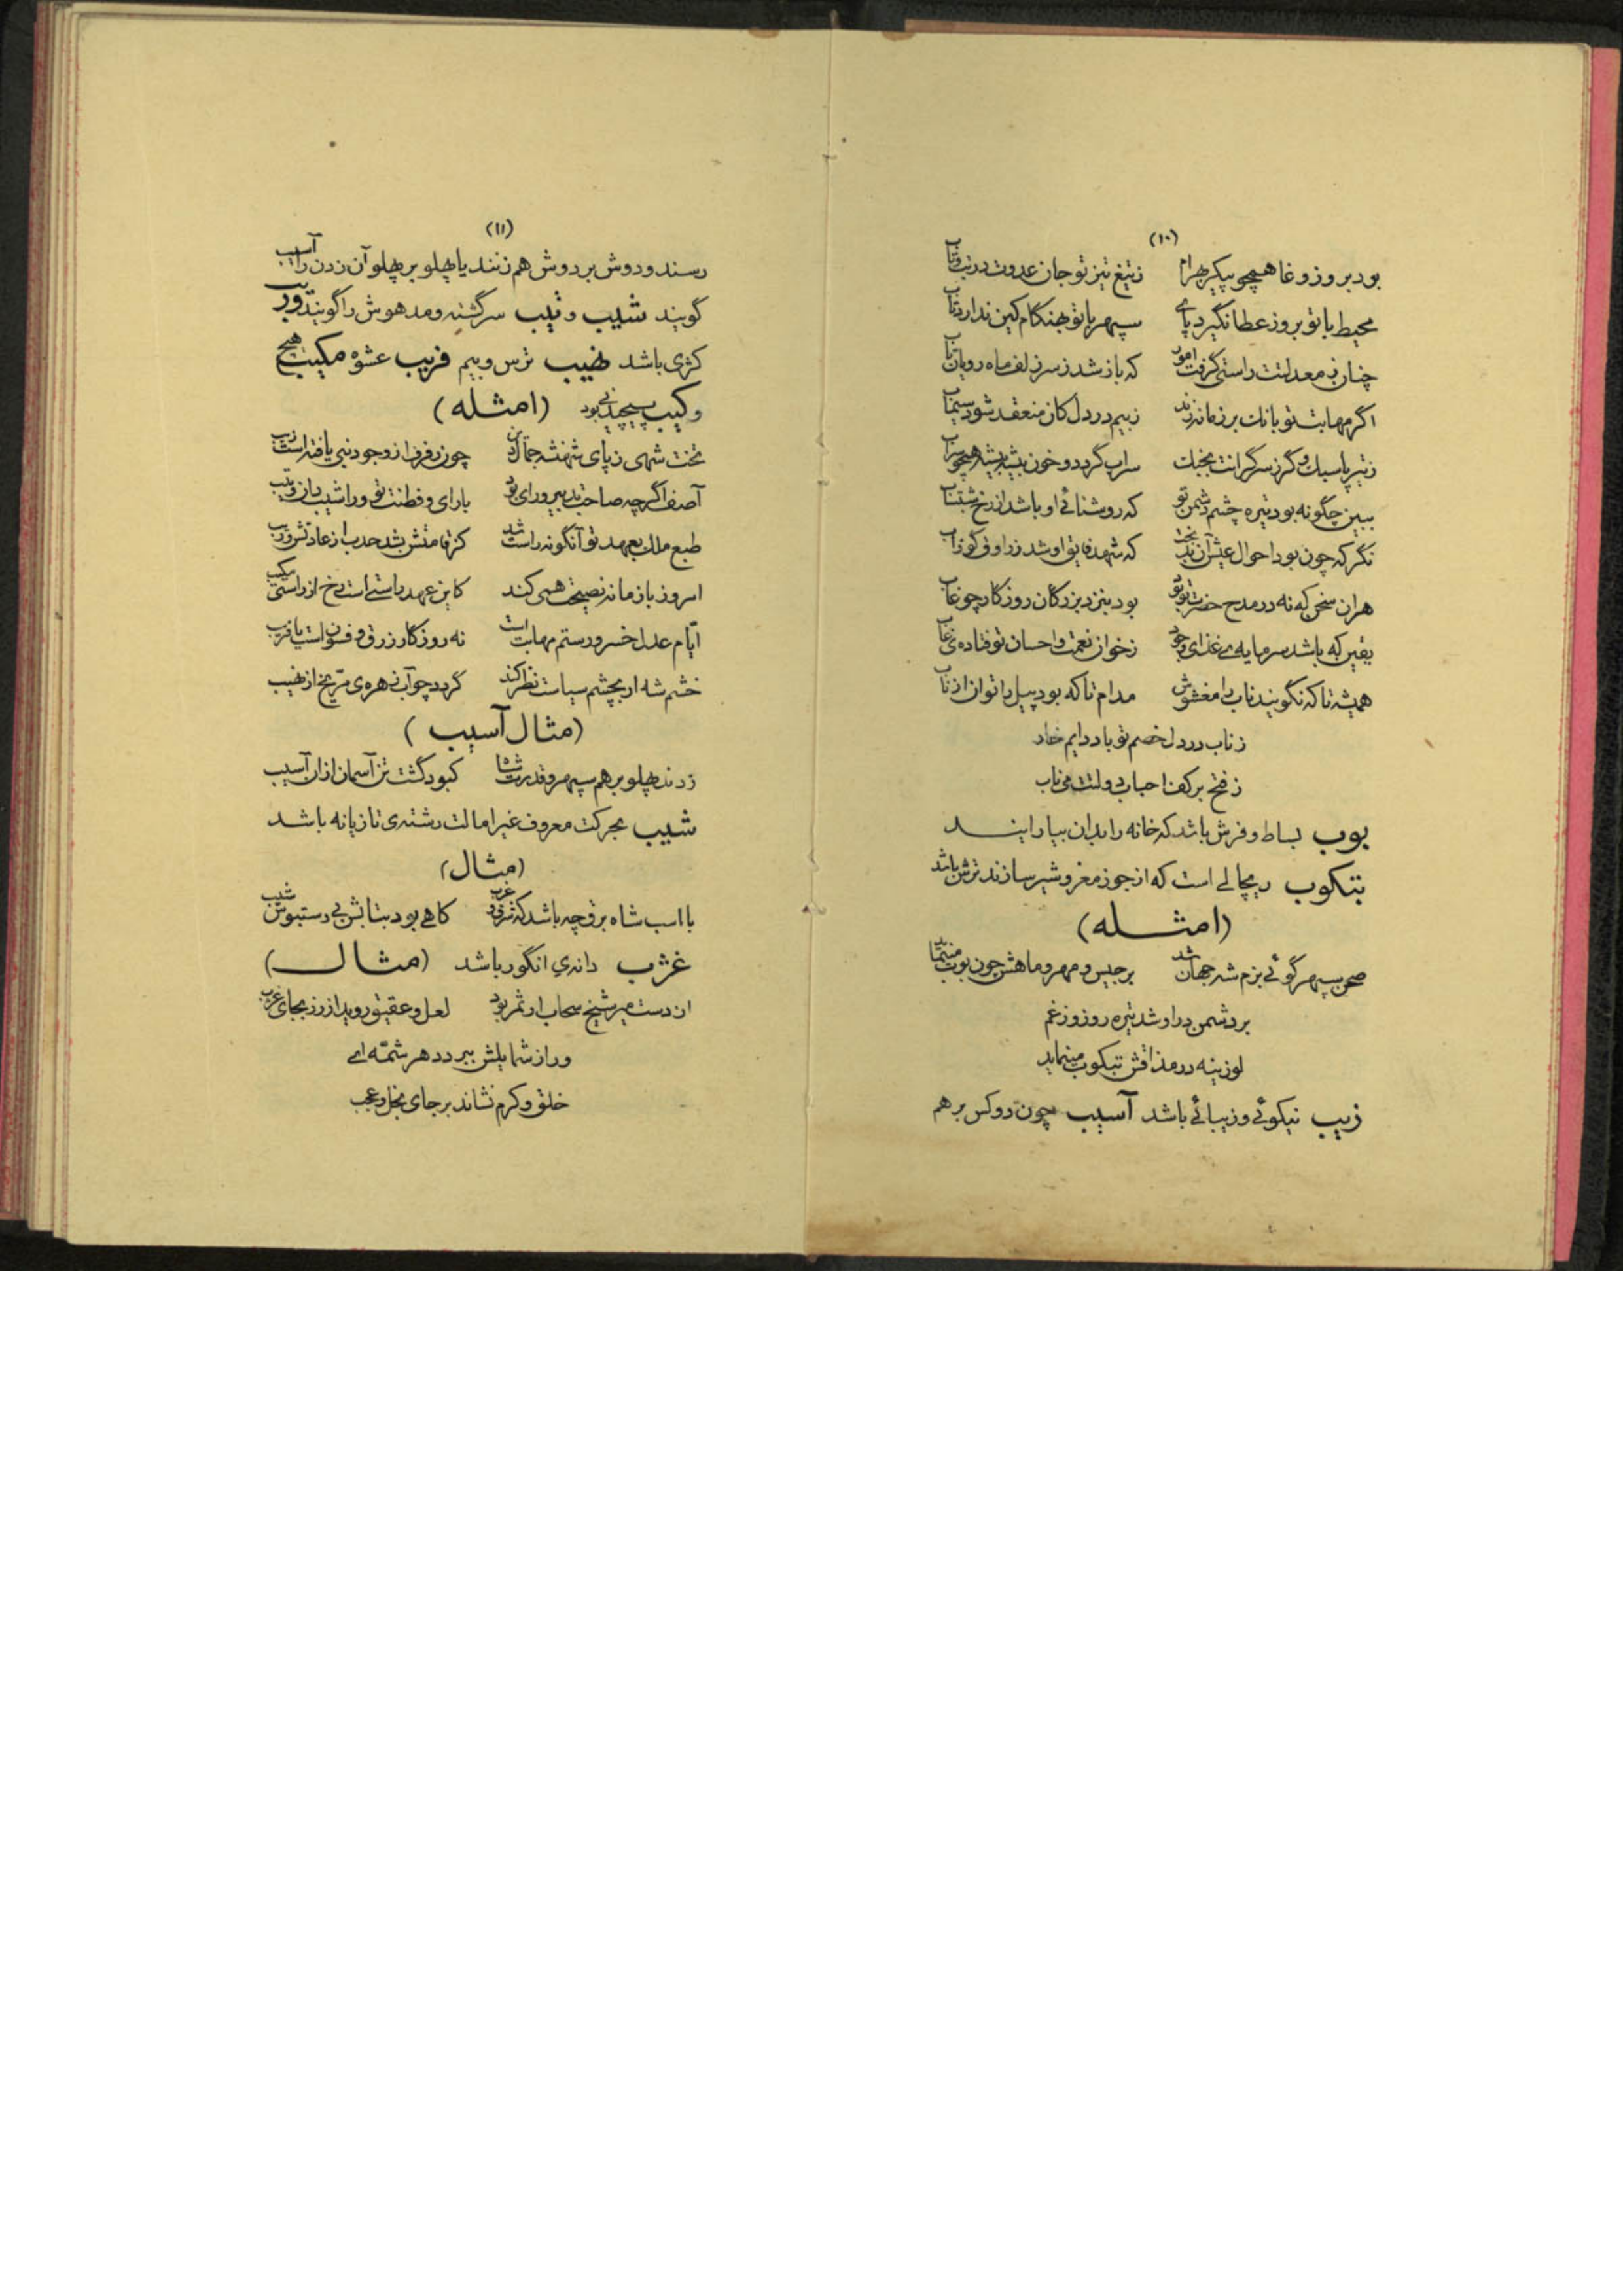 (۱۰)
بود بروز وغا همچو پیکر بهرام زتیغ تیز تو جان عدوت در تب و تاب
محیط با تو بروز عطا نگیرد پای سپهر با تو بهنگام کین ندارد تاب
چنان ز معدلتت راستی گرفت امور که باز شد ز سر زلف ماه رویان تاب
اگر مهابت تو بانک بر زمانه زند ز بیم در دل کان منعقد شود سیماب
ز تیر پا سبک و گرز سر گرانت بجنک سراب گردد و خون بیشه بیشه همچو سراب
ببین چگونه بود تیره چشم دشمن تو که روشنائی او باشد از رخ شبتاب
نگر که چون بود احوال عیش آن بدبخت که شهد فایق او شد ز راوق کوزاب
هران سخن که نه در مدح حضرت تو بود بنزد بزرکان روزکار چو غاب
یقین که باشد سرمایه‌ی غذای وجود ز خوان نعمت و احسان تو فتاده‌ی غاب
همیشه تا که نگویند ناب را مغشوش مدام تا که بود پیل را توان از ناب
ز ناب در دل خصم تو باد دایم خار
ز فتح بر کف احباب دولتت می ناب
بوب بساط و فرش باشد که خانه را بدان بیارایند
بتکوب ریچالی است که از جوز مغز و شیر سازند ترش باشد
(امثله)
صحن سپهر گوئی بزم شه جهان شد برجیس و مهر و ماهش چون بوب مینماید
بر دشمن در او شد تیره روز و ز غم
لوزینه در مذاقش بتکوب مینماید
زیب نیکوئی و زیبائی باشد آسیب چون دو کس بر هم
(۱۱)
رسند و دوش بر دوش هم زنند یا پهلو بر پهلو آن زدن را آسیب
گویند شیب و تیب سرگشته و مدهوش را گویند وریب
کژی باشد نهیب ترس و بیم فریب عشوه مکیب هیچ
وکیب پیچیدنی بود (امثله)
تخت شهی ز پای شهنشه جمال دین چون فر فزا ز وجود نبی یافته است زیب
آصف اگرچه صاحب تدبیر و رای بود با رای و فطنت تو ورا شیب دان و تیب
طبع ملک بعهد تو آنگونه راست شد کز قامتش بشد حدب از عادتش وریب
امروز باز مانه نصیحت همی کند کاین عهد راستی است رخ از راستی مکیب
ایّام عدل خسرو رستم مهابت است نه روزکار زرق و فسون است یا فریب
خشم شه ار بچشم سیاست نظر کند گردد چو آب زهره‌ی مرّیخ از نهیب
(مثال آسیب)
زدند پهلو بر هم سپهر و قدرت شاه کبود گشت تن آسمان از ان آسیب
شیب بحرکت معروف غیر امالت رشته‌ی تازیانه باشد
(مثال)
با اسب شاه برق چه باشد که شرق و غرب کاهی بود بتابش بی دستبوش شیب
غژب دانه‌ی انگور باشد (مثال)
از دست میر شیخ سحاب ار ثمر بود لعل و عقیق روید از رز بجای غژب
ور از شمایلش ببرد دهر شمّه‌ای
خلق و کرم نشاند بر جای بخل و عجب